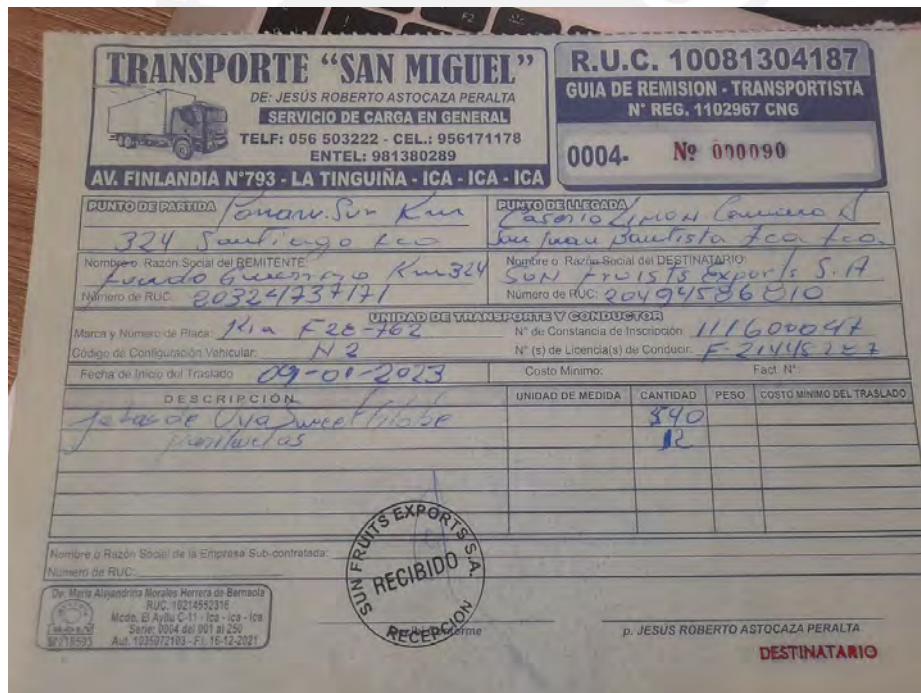 F2
TRANSPORTE "SAN MIGUEL"
DE: JESÚS ROBERTO ASTOCAZA PERALTA
SERVICIO DE CARGA EN GENERAL
TELF: 056 503222 - CEL.: 956171178
ENTEL: 981380289
AV. FINLANDIA N°793 - LA TINGUIÑA - ICA - ICA - ICA
R.U.C. 10081304187
GUIA DE REMISION - TRANSPORTISTA
N° REG. 1102967 CNG
0004- Nº 000090
PUNTO DE PARTIDA Panam. Sur Km
324 Santiago Ica
PUNTO DE LLEGADA Caserio Limon Camino
San Juan Bautista Ica Ica
Nombre o Razón Social del REMITENTE:
Fundo Guerrero Km 324
Número de RUC: 20324737171
Nombre o Razón Social del DESTINATARIO:
Sun Fruists Exports S.A
Número de RUC: 20494586010
UNIDAD DE TRANSPORTE Y CONDUCTOR
Marca y Número de Placa: Kia F2E-762
N° de Constancia de Inscripción: 111600047
Código de Configuración Vehicular: N2
N° (s) de Licencia(s) de Conducir: F-21445287
Fecha de Inicio del Traslado 09-01-2023
Costo Minimo:
Fact. N°:
DESCRIPCIÓN UNIDAD DE MEDIDA CANTIDAD PESO COSTO MÍNIMO DEL TRASLADO
Jabas de Uva Sweet Globe 540
12
Nombre o Razón Social de la Empresa Sub-contratada:
Número de RUC:
SUN FRUITS EXPORTS S.A.
RECIBIDO
RECEPCION
De: Maria Alejandrina Morales Herrera de Bernaola
RUC. 10214552316
Mcdo. El Ayllu C-11 - Ica - Ica - Ica
Serie: 0004 del 001 al 250
Aut. 1035972103 - F.I. 16-12-2021
p. JESÚS ROBERTO ASTOCAZA PERALTA
DESTINATARIO